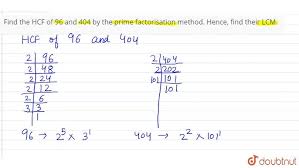 Find the HCF of 96 and 404 by the prime factorisation method. Hence, find their LCM.
HCF of 96 and 404
2 96 2 404
2 48 2 202
2 24 101 101
2 12 101
2 6
3 3
1
96 → 2⁵ × 3¹ 404 → 2² × 101¹
doubtnut